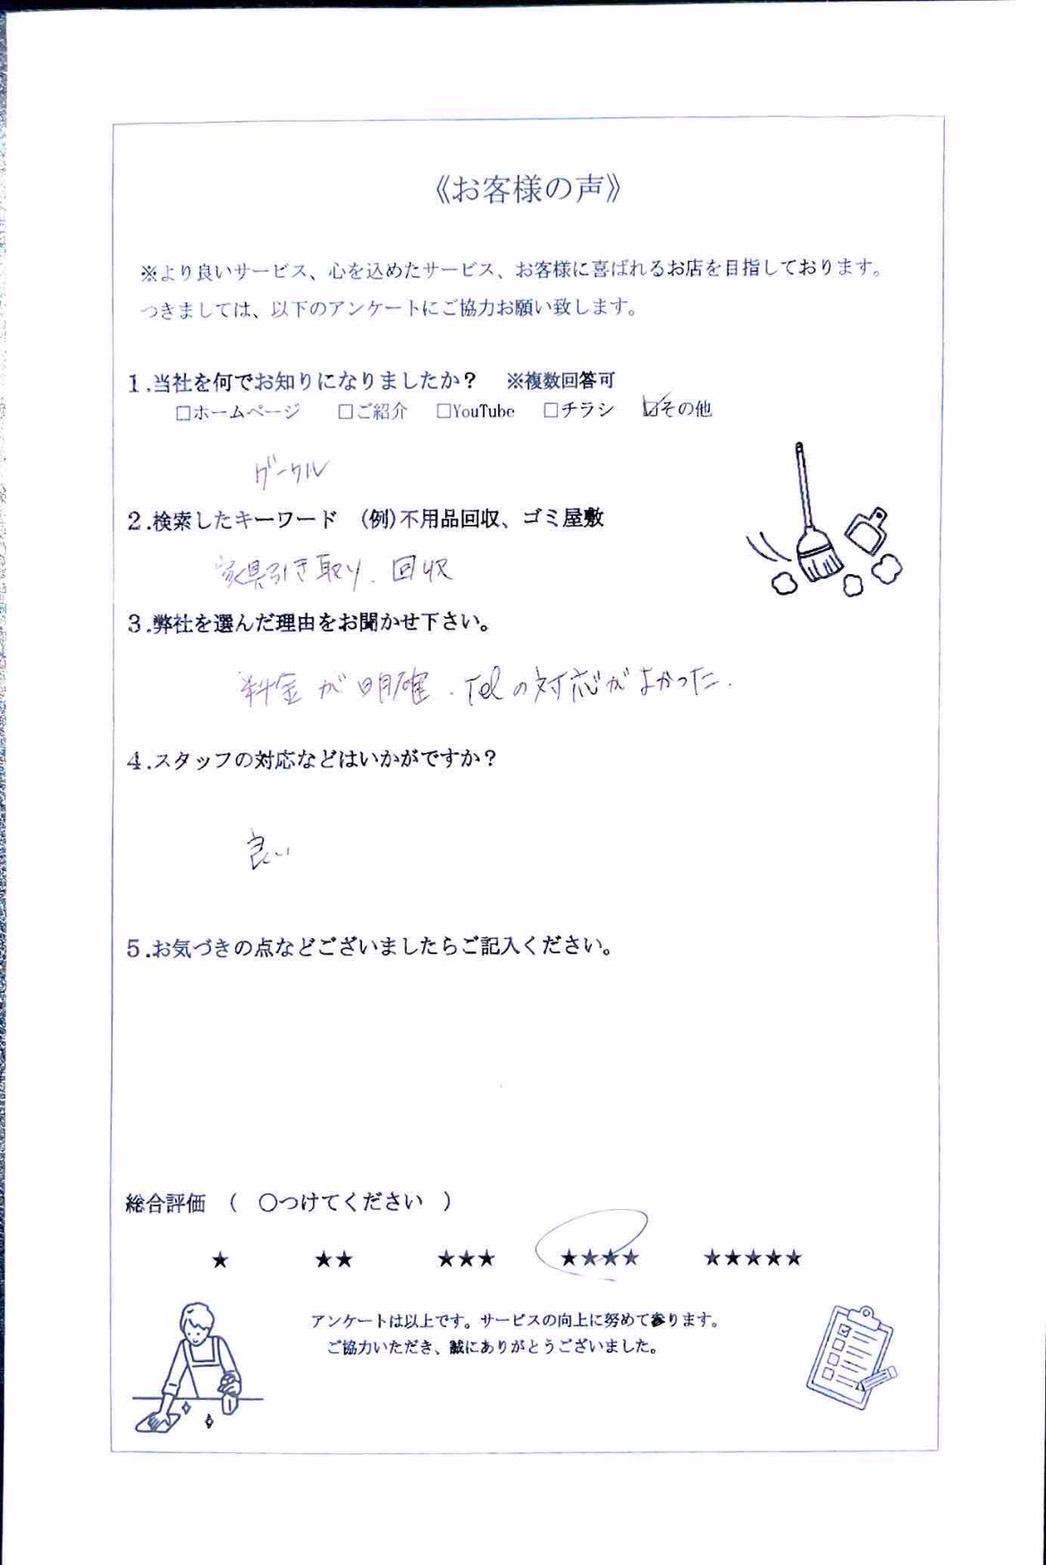 《お客様の声》
※より良いサービス、心を込めたサービス、お客様に喜ばれるお店を目指しております。
つきましては、以下のアンケートにご協力お願い致します。
1.当社を何でお知りになりましたか？　※複数回答可
□ホームページ　□ご紹介　□YouTube　□チラシ　☑その他
グーグル
2.検索したキーワード　(例)不用品回収、ゴミ屋敷
家具引き取り、回収
3.弊社を選んだ理由をお聞かせ下さい。
料金が明確、Telの対応がよかった。
4.スタッフの対応などはいかがですか？
良い
5.お気づきの点などございましたらご記入ください。
総合評価　(　〇つけてください　)
★　★★　★★★　★★★★　★★★★★
アンケートは以上です。サービスの向上に努めて参ります。
ご協力いただき、誠にありがとうございました。